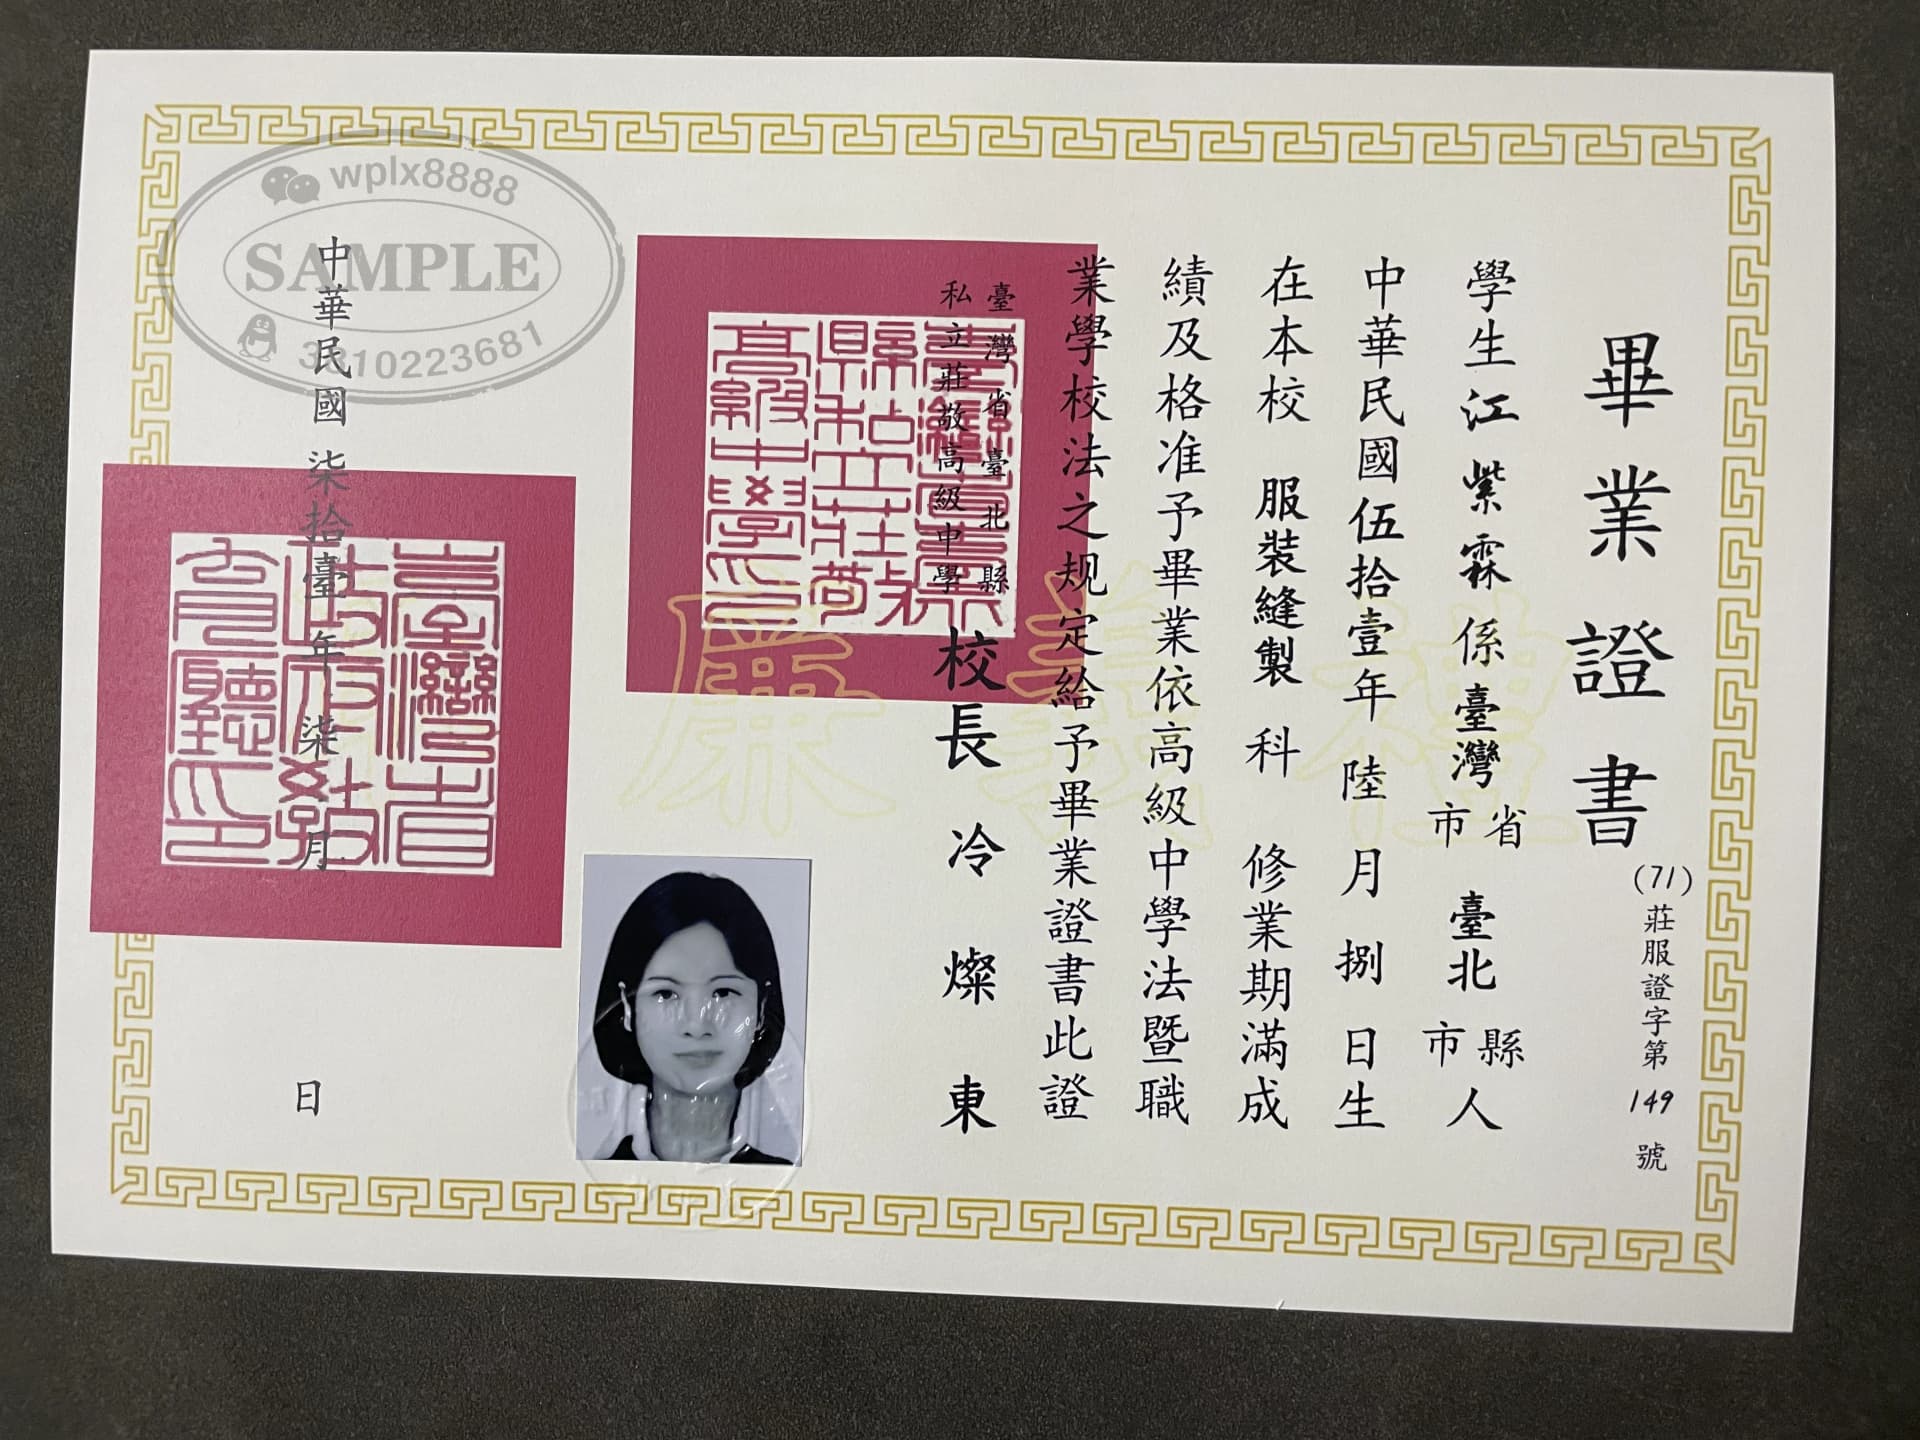 畢業證書
(71)莊服證字第149號
學生江紫霖係臺灣省市臺北縣市人
中華民國伍拾壹年陸月捌日生
在本校服裝縫製科修業期滿成
績及格准予畢業依高級中學法暨職
業學校法之规定給予畢業證書此證
臺灣省臺北縣
私立莊敬高級中學
校長冷燦東
中華民國柒拾臺年柒月日
臺灣省臺北縣私立莊敬高級中學印
臺灣省政府教育廳印
禮義廉
wplx8888
SAMPLE
3310223681